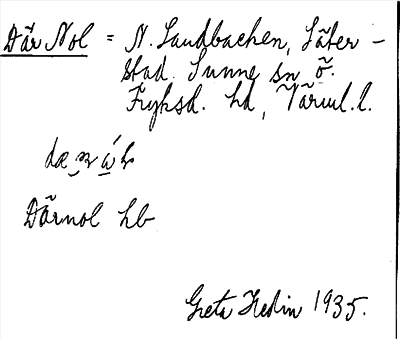 Där Nol = N. Sandbacken, Säter-
stad. Sunne sn ö.
Fryksd. hd, Värml. l.
Därnol hb
Greta Hedin 1935.